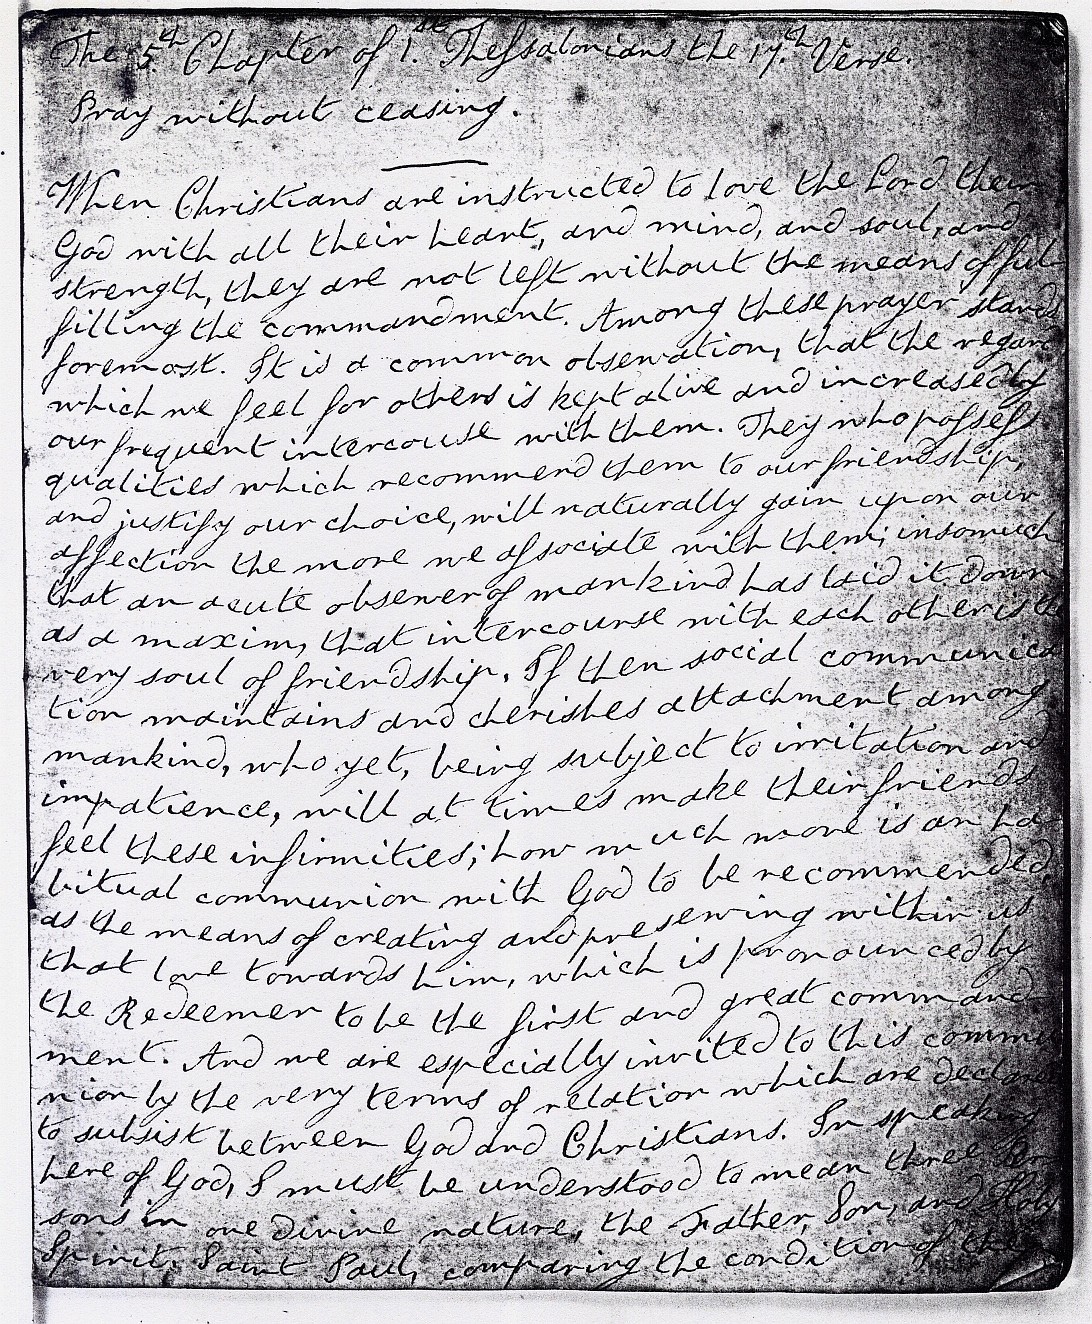 The 5.th Chapter of 1.st Thessalonians the 17.th Verse.
Pray without ceasing.
When Christians are instructed to love the Lord their
God with all their heart, and mind, and soul, and
strength, they are not left without the means of ful-
filling the commandment. Among these prayer stands
foremost. It is a common observation, that the regard
which we feel for others is kept alive and increased by
our frequent intercourse with them. They who possess
qualities which recommend them to our friendship,
and justify our choice, will naturally gain upon our
affection the more we associate with them; insomuch
that an acute observer of mankind has laid it down
as a maxim, that intercourse with each other is the
very soul of friendship. If then social communica
tion maintains and cherishes attachment among
mankind, who yet, being subject to irritation and
impatience, will at times make their friends
feel these infirmities; how much more is an ha-
bitual communion with God to be recommended,
as the means of creating and preserving within us
that love towards him, which is pronounced by
the Redeemer to be the first and great command-
ment. And we are especially invited to this commu
nion by the very terms of relation which are declared
to subsist between God and Christians. In speaking
here of God, I must be understood to mean three Per
sons in one divine nature, the Father, Son, and Holy
Spirit. Saint Paul, comparing the condition of the